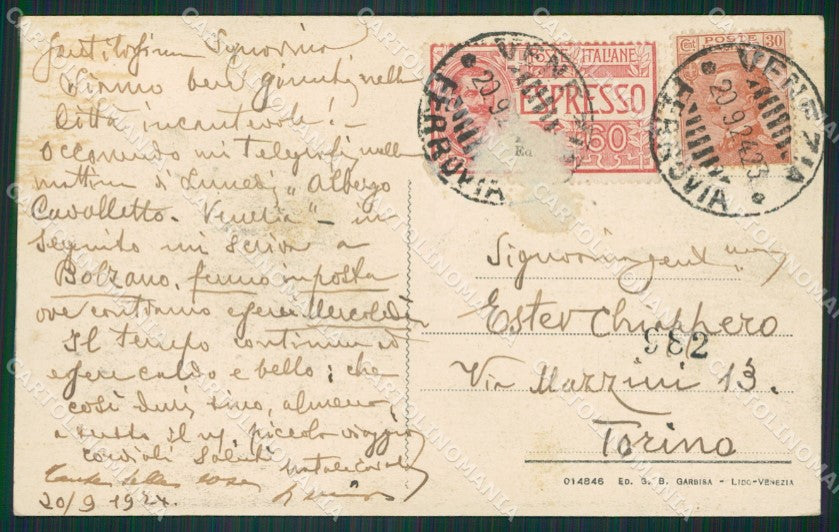 Signorina
Siamo ben giunti nella
Città incantevole!
Occorrendo mi telegrafi nella
mattina di Lunedì „Albergo
Cavalletto - Venezia" - in
seguito mi scriva a
Bolzano, fermo posta
ove contiamo essere Mercoledì
Il tempo continua ad
essere caldo e bello; che
così duri sino, almeno,
a tutto il ns. piccolo viaggio
cordiali saluti
tante belle cose
20/9 1924.
POSTE ITALIANE
ESPRESSO
60
Cent POSTE 30
VENEZIA
FERROVIA
20.9
VENEZIA
20.9.24.23
FERROVIA
Ed
Signorina gent
Ester Chiappero
982
Via Mazzini 13.
Torino
014846 ED. G. B. GARBISA - LIDO-VENEZIA
CARTOLINOMANIA